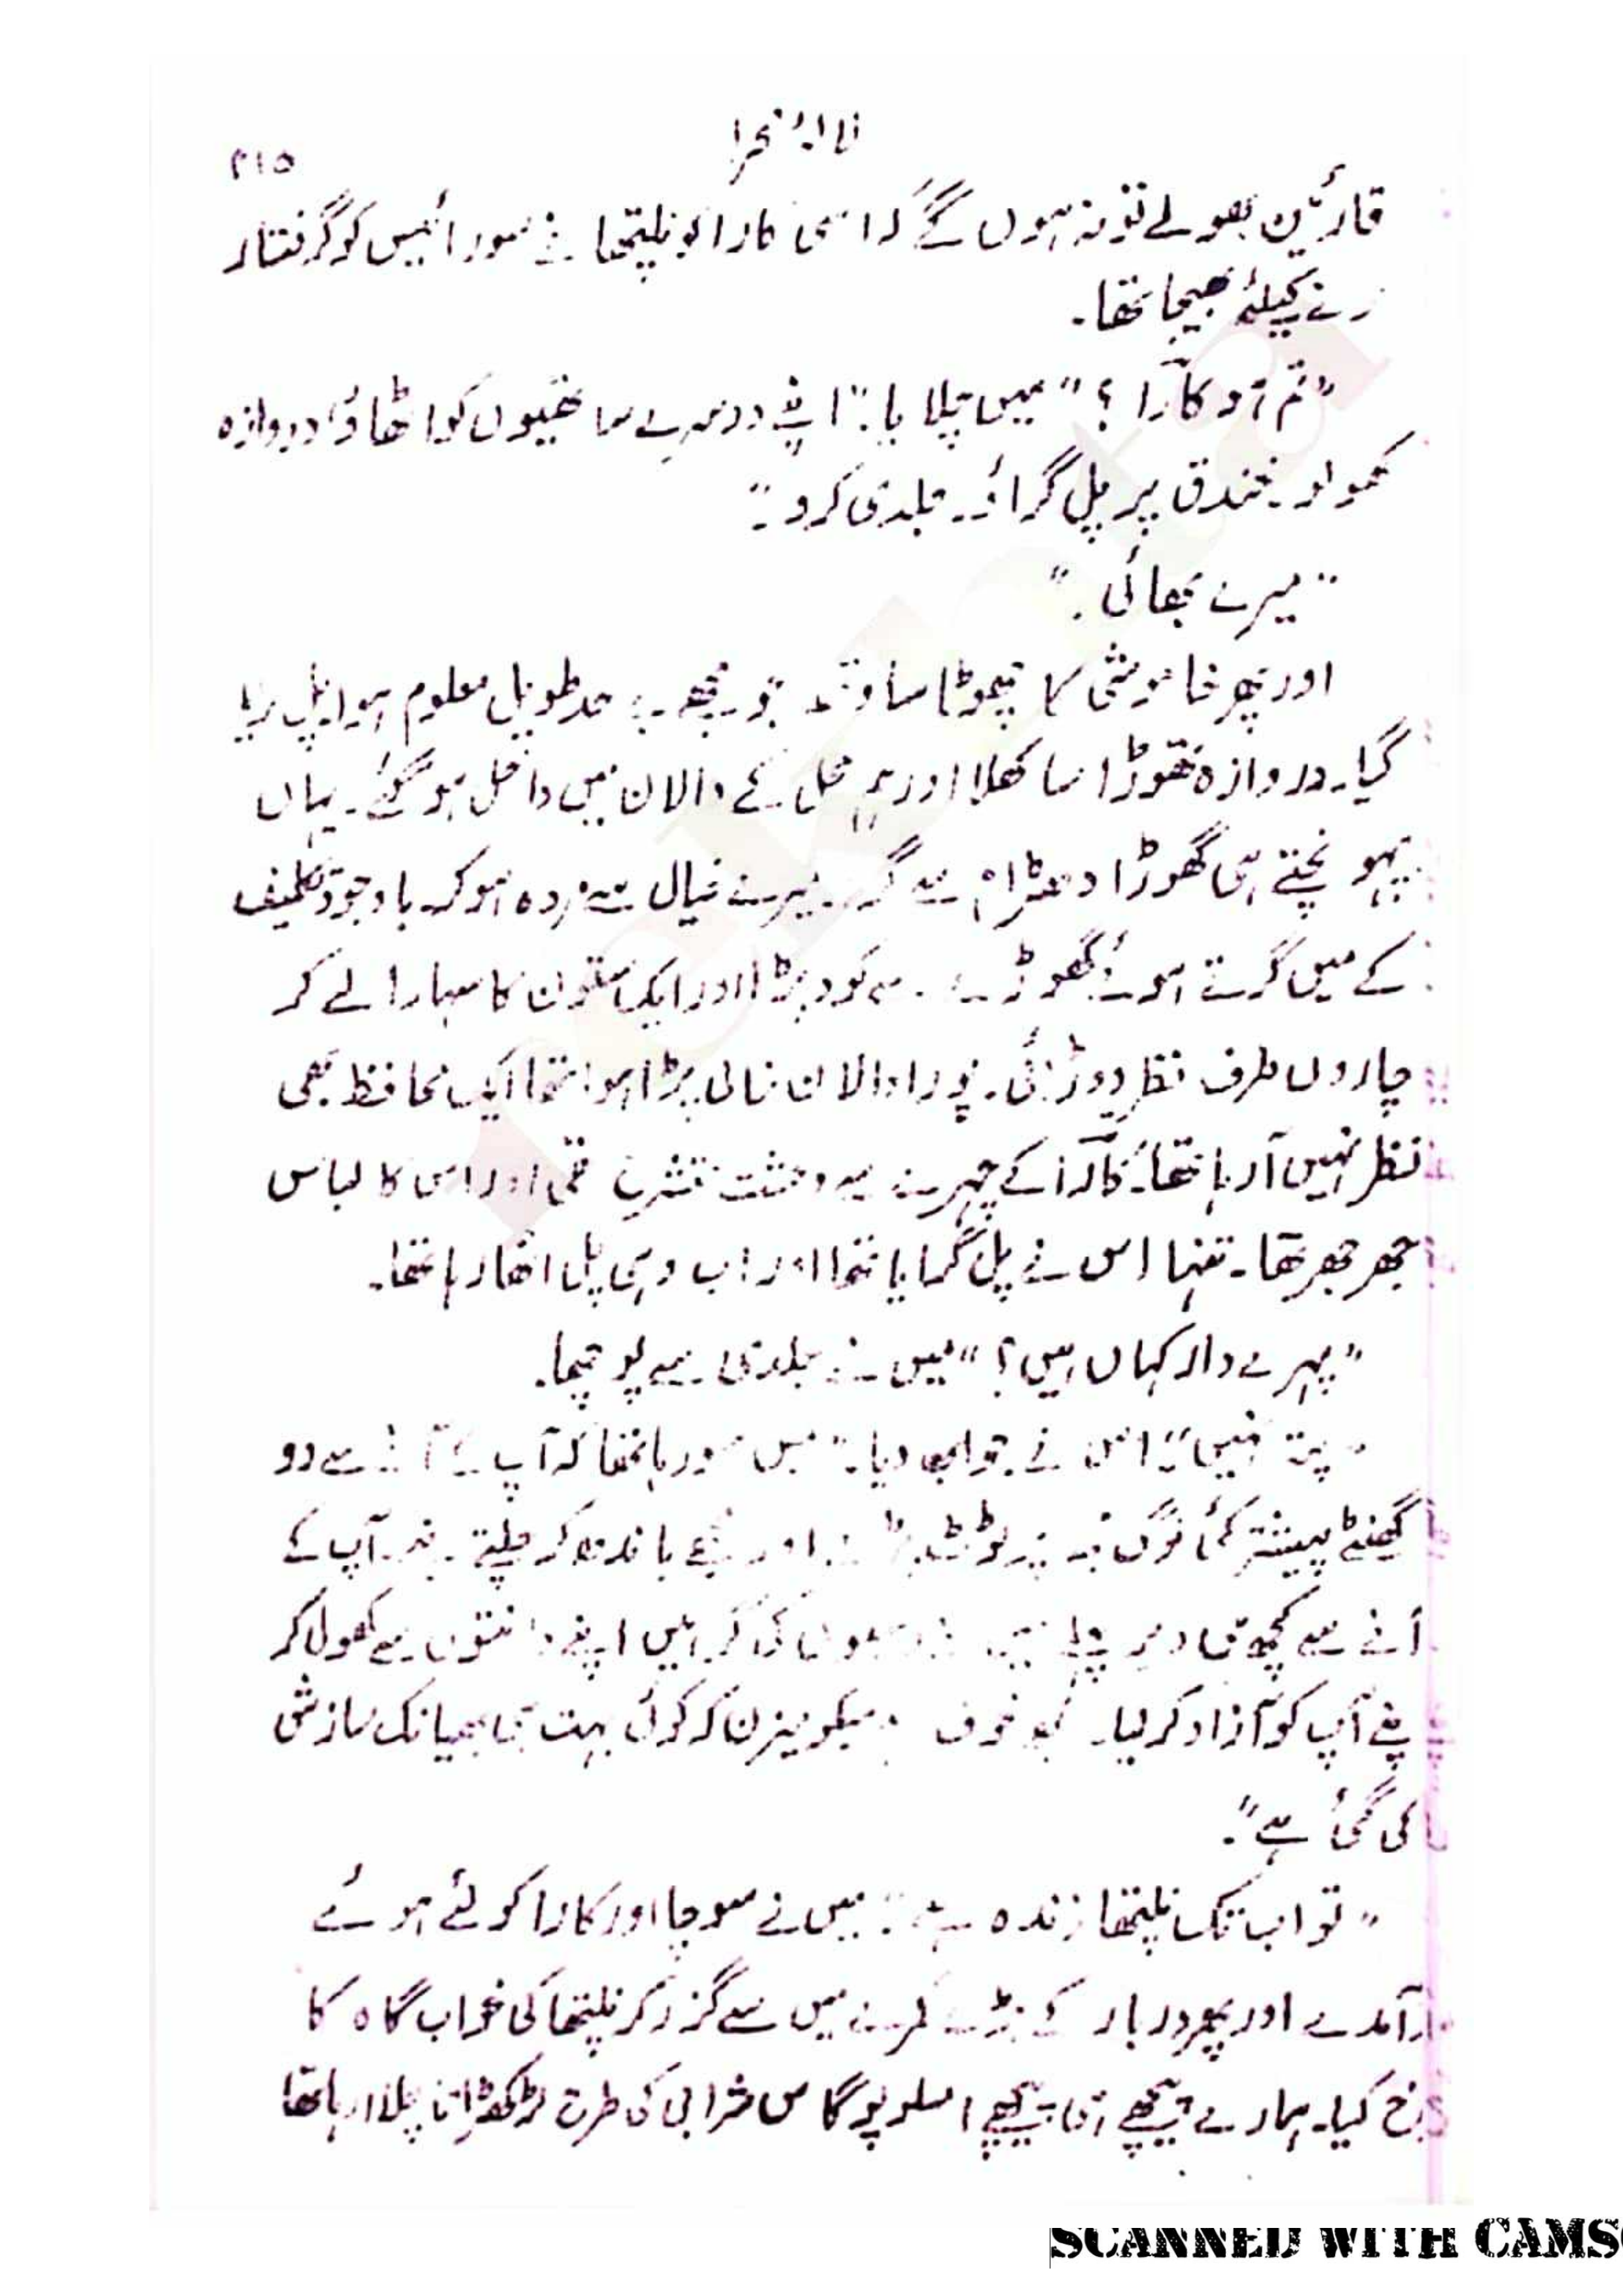 ۲۱۵
قارئین بھولے تو نہ ہوں گے کہ اسی کارا کو نلیتھا نے سورائیس کو گرفتار
کرنے کیلئے بھیجا تھا۔
”تم ہو کارا؟“ میں چلایا۔ ”اپنے دوسرے ساتھیوں کو اٹھاؤ دروازہ
کھولو۔ خندق پر پل گراؤ۔ جلدی کرو۔“
”میرے بھائی۔“
اور پھر خاموشی کا چھوٹا سا وقفہ جو مجھے بے حد طویل معلوم ہوا پل گرایا
گیا۔ دروازہ تھوڑا سا کھلا اور ہم محل کے دالان میں داخل ہو گئے۔ یہاں
پہونچتے ہی گھوڑا دھڑام سے گرا۔ میرے خیال سے مردہ ہو کر۔ باوجود تکلیف
کے میں گرتے ہوئے گھوڑے سے کود پڑا اور ایک ستون کا سہارا لے کر
چاروں طرف نظر دوڑائی۔ پورا دالان خالی پڑا ہوا تھا ایک محافظ بھی
نظر نہیں آ رہا تھا۔ کارا کے چہرے سے وحشت تھی اور اس کا لباس
جھر جھر تھا۔ تنہا اس نے پل گرایا تھا اور اب وہی پل اٹھا رہا تھا۔
”پہرے دار کہاں ہیں؟“ میں نے جلدی سے پوچھا۔
”پتہ نہیں“ اس نے جواب دیا۔ ”میں سو رہا تھا کہ آپ کے آنے سے دو
گھنٹے پیشتر کئی لوگ مجھ پر ٹوٹ پڑے اور مجھے باندھ کر چلتے بنے۔ آپ کے
آنے سے کچھ ہی دیر پہلے میں نے کی گرہیں اپنے دانتوں سے کھول کر
اپنے آپ کو آزاد کر لیا۔ مجھے خوف ہے میکومیزن کہ کوئی بہت ہی بھیانک سازش
کی گئی ہے“۔
”تو اب تک نلیتھا زندہ ہے“ میں نے سوچا اور کارا کو لئے ہوئے
برآمدے اور پھر دربار کے بڑے کمرے میں سے گزر کر نلیتھا کی خواب گاہ کا
رخ کیا۔ ہمارے پیچھے ہی پیچھے امسلوپوگاس شرابی کی طرح لڑکھڑاتا چلا آ رہا تھا
SCANNED WITH CAMS